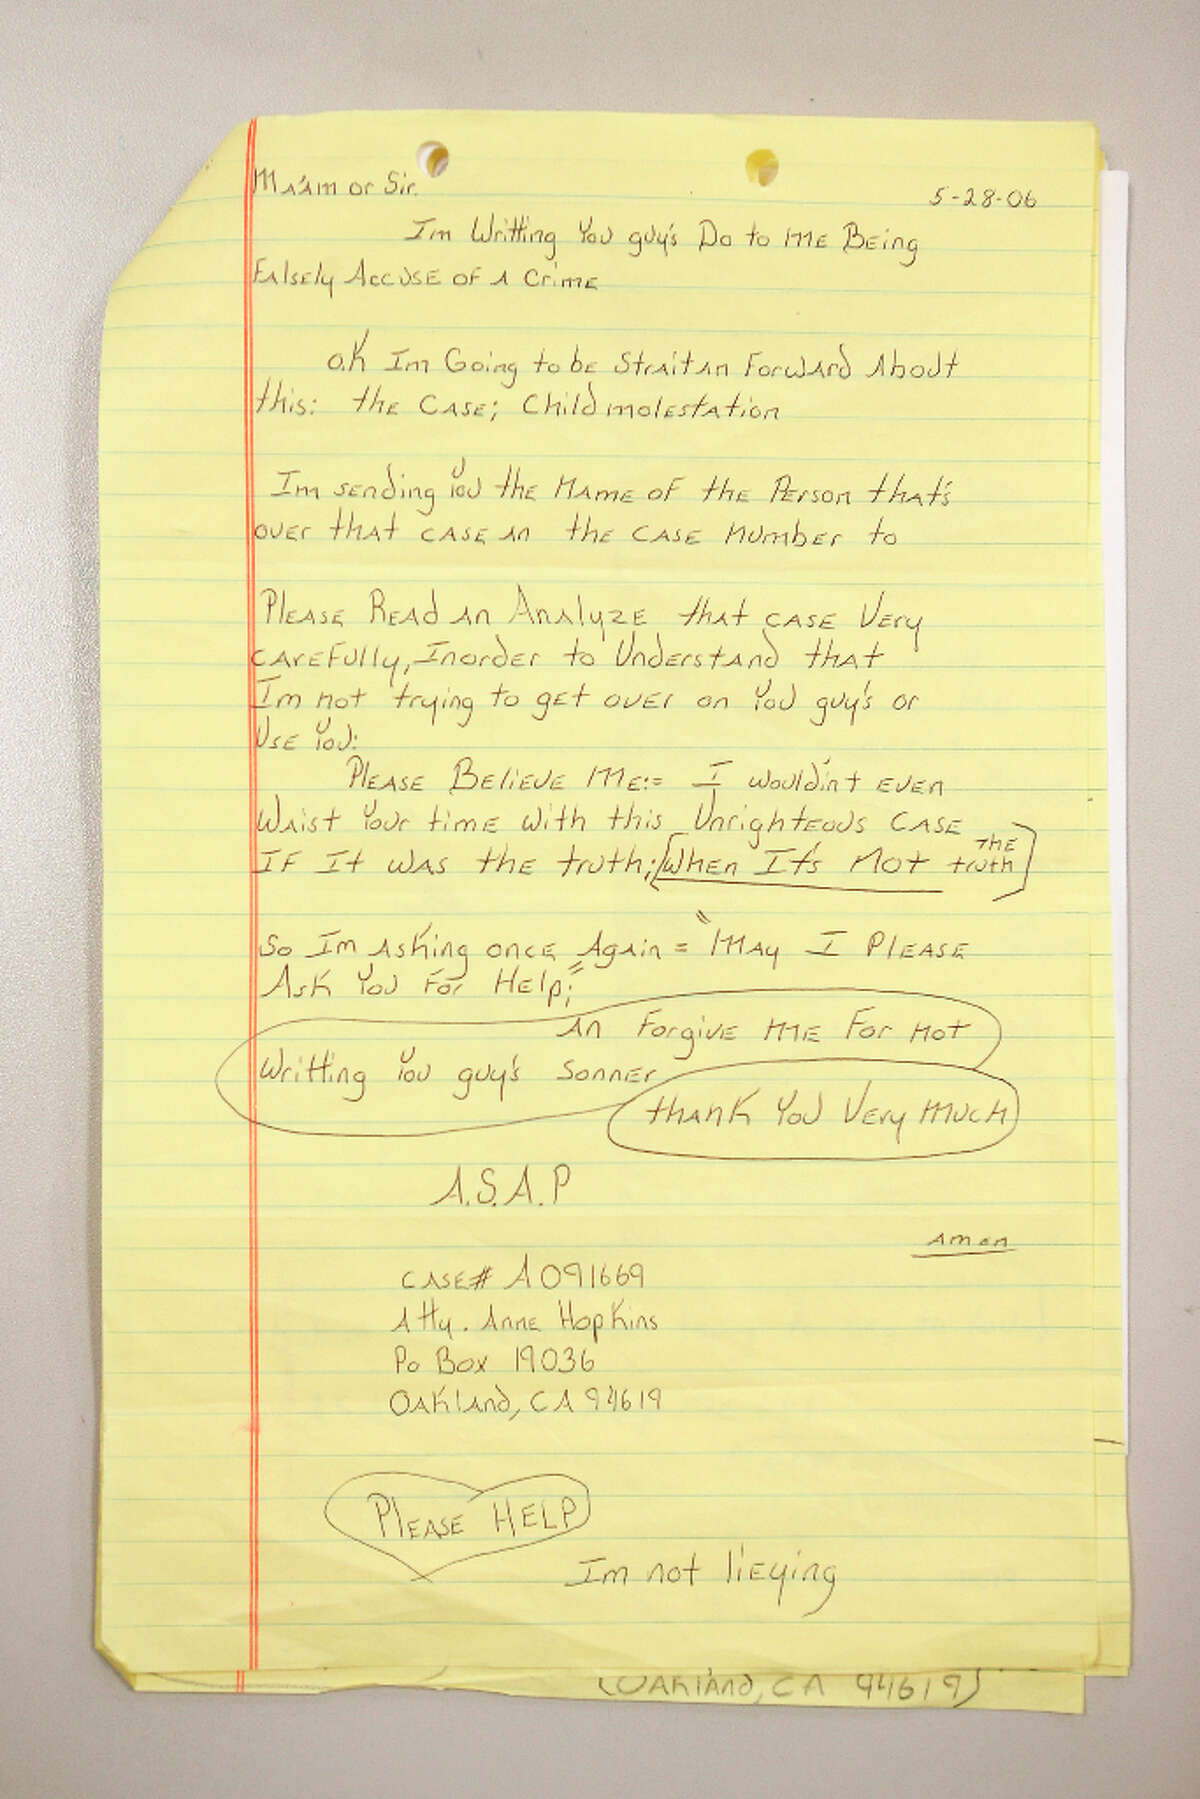 Ma'am or Sir. 5-28-06
Im Writting You guy's Do to Me Being
Falsely Accuse of a Crime
O.K Im Going to be Straitan Forward About
this: the Case; Child molestation
Im sending You the Name of the Person that's
over that case an the case number to
Please Read an Analyze that case Very
carefully, Inorder to Understand that
I'm not trying to get over on You guy's or
Use You:
Please Believe Me:= I wouldin't even
Waist Your time with this Unrighteous Case
If It was the truth; [When It's Not the truth]
So Im asking once Again = "May I Please
Ask You For Help;"
an Forgive me For not
Writting You guy's Sonner
thank You Very Much
A.S.A.P
amen
case# A091669
Atty. Anne Hopkins
Po Box 19036
Oakland, CA 94619
Please HELP
Im not lieying
(Oakland, CA 94619)